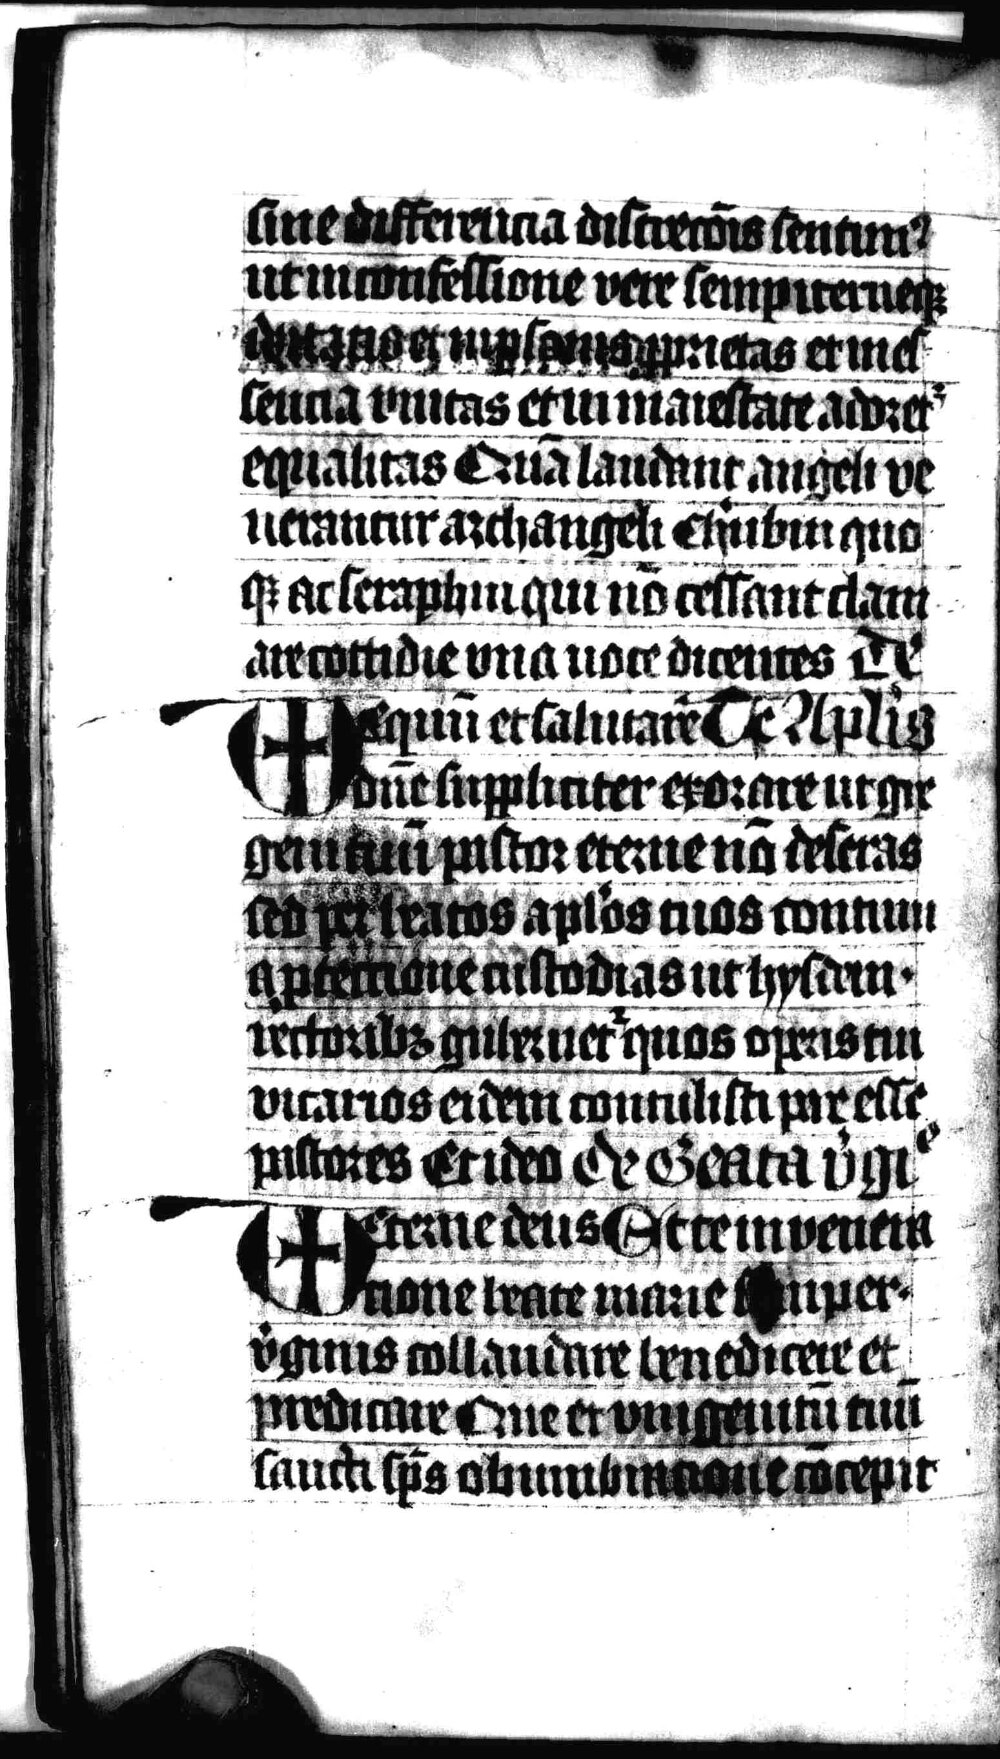 sine differencia discrecōis sentim⁹
ut in confessione vere sempiterneqꝫ
deitatis et in psonis ꝓprietas et in es
sencia vnitas et in maiestate adoretᷣ
equalitas Quā laudant angeli ve
nerantur archangeli Cherubin quo
qꝫ ac seraphin qui nō cessant clam
are cottidie vna uoce dicentes De
equū et salutare Te Aplis
dn̄e suppliciter exorare ut gre
gem tuū pastor eterne nō deseras
sed per beatos aplos tuos continu
a ptectione custodias ut hysdem
rectoribꝫ gubernetᷣ quos operis tui
vicarios eidem contulisti pre esse
pastores Et ideo De Beata vᷣgie
eterne deus Et te in venera
tione beate marie semper
vᷣginis collaudare benedicere et
predicare Que et vnigenitū tuū
sancti sp̄s obumbracione cōcepit